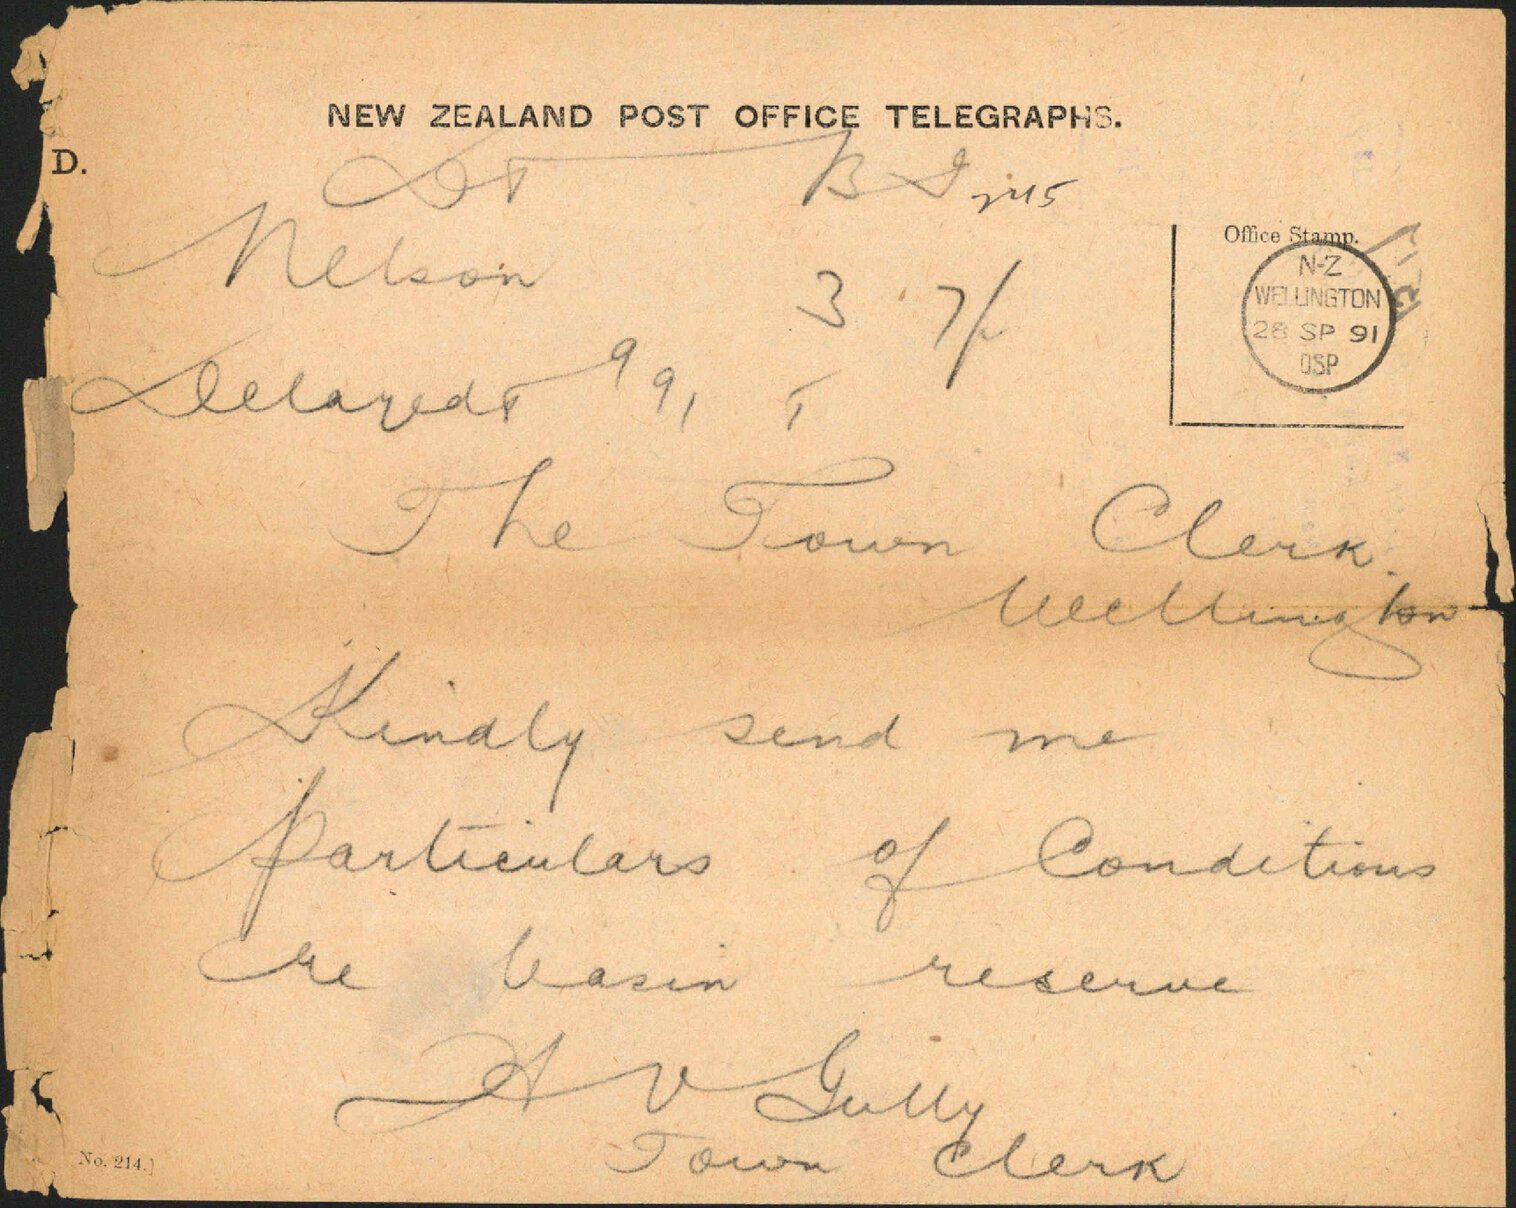 NEW ZEALAND POST OFFICE TELEGRAPHS.
D.
Nelson
3 7/
Office Stamp.
N-Z
WELLINGTON
28 SP 91
OSP
Delayed
The Town Clerk
Wellington
Kindly send me
particulars of Conditions
re basin reserve
A V Gully
Town Clerk
No. 214.]